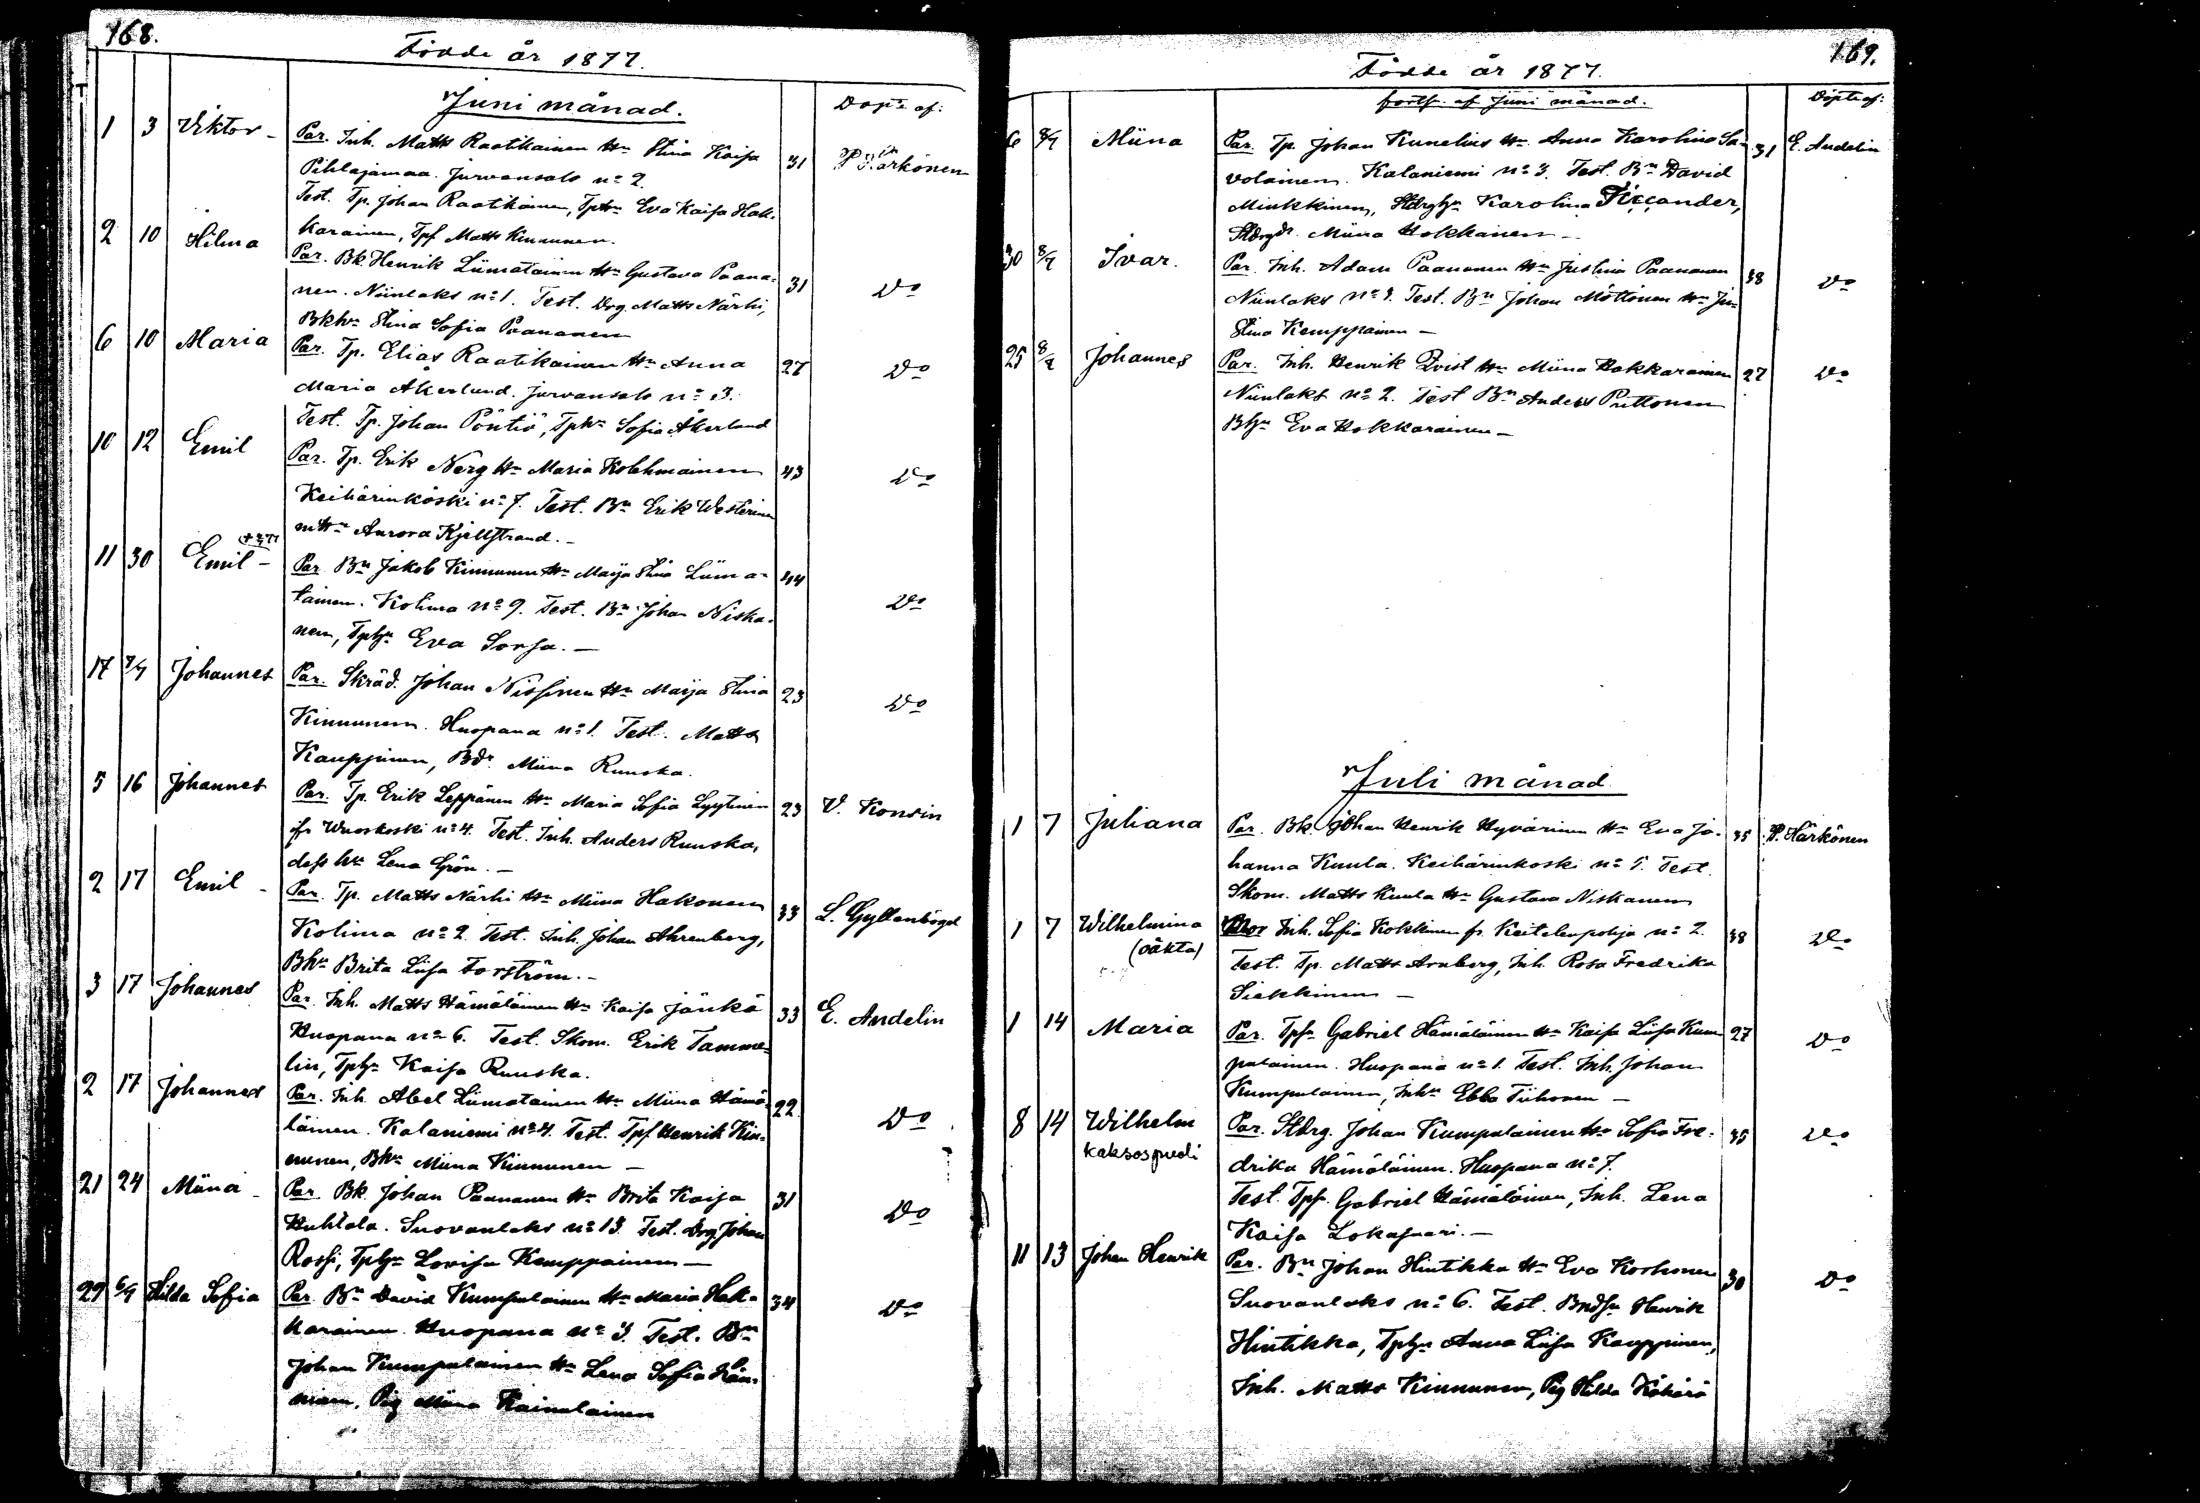 168.
Födde år 1877.
Juni månad.
Döpte af:
1 3 Viktor - Par. Inh. Matts Raatikainen Hu Stina Kaisa 31 P. Härkönen
Pihlajamaa. Jurvansalo no 2.
Test. Tp. Johan Raatikainen, Tphu Eva Kaisa Hak-
karainen, Tpf Matts Kinnunen.
2 10 Hilma Par. Bk. Henrik Liimatainen Hu Gustava Paana- 31 Do
nen. Niinlaks no 1. Test. Drg. Matts Närhi,
Bkhu Stina Sofia Paananen
6 10 Maria Par. Tp. Elias Raatikainen Hu Anna 27 Do
Maria Åkerlund. Jurvansalo no 3.
Test. Tp. Johan Pöntiö, Tphu Sofia Åkerlund
10 12 Emil Par. Tp. Erik Nerg Hu Maria Kolehmainen 43 Do
Keihärinkoski no 7. Test. Bn Erik Westerinen
m Hu Aurora Kjellstrand. -
11 30 Emil - Par. Bn Jakob Kinnunen Hu Maija Stina Liima- 44 Do
tainen. Kolima no 9. Test. Bn Johan Niska-
nen, Tphu Eva Sorsa. -
17 7/7 Johannes Par. Skräd. Johan Nissinen Hu Maija Stina 23 Do
Kinnunen. Huopana no 1. Test. Matts
Kauppinen, Bdr Miina Ruuska.
5 16 Johannes Par. Tp. Erik Leppänen Hu Maria Sofia Lyytinen 23 V. Konsin
fr Wuoskoski no 4. Test. Inh. Anders Ruuska,
dess hu Lena Grön. -
2 17 Emil - Par. Tp. Matts Närhi Hu Miina Hakonen 33 L. Gyllenbögel
Kolima no 2. Test. Inh. Johan Ahrenberg,
Bhu Brita Liisa Forström. -
3 17 Johannes Par. Inh. Matts Hämäläinen Hu Kaisa Jänkä 33 E. Andelin
Huopana no 6. Test. Skom. Erik Tamme-
lin, Tphu Kaisa Ruuska.
2 17 Johannes Par. Inh. Abel Liimatainen Hu Miina Hämä- 22 Do
läinen. Kalaniemi no 4. Test. Tpf. Henrik Kin-
nunen, Bhu Miina Kinnunen -
21 24 Miina - Par. Bk. Johan Paananen Hu Brita Kaisa 31 Do
Huhtala. Suovanlaks no 13. Test. Drg Johan
Rossi, Tphu Lovisa Kemppainen -
29 6/7 Hilda Sofia Par. Bn David Kumpulainen Hu Maria Hak- 34 Do
karainen. Huopana no 3. Test. Bn
Johan Kumpulainen Hu Lena Sofia Hän-
ninen, Pig Miina Kainulainen
169.
Födde år 1877.
fortf. af Juni månad.
Döpte af:
6 8/7 Miina Par. Tp. Johan Kunelius Hu Anna Karolina Sa- 31 E. Andelin
volainen. Kalaniemi no 3. Test. Bn David
Minkkinen, Karolina Ticcander,
Miina Hokkanen -
30 8/7 Ivar. Par. Inh. Adam Paananen Hu Justina Paananen 38 Do
Niinlaks no 3. Test. Bn Johan Möttönen Hu Ju-
stina Kemppainen -
25 8/7 Johannes Par. Inh. Henrik Qvist Hu Miina Hakkarainen 27 Do
Niinlaks no 2. Test Bn Anders Puttonen
Bhu Eva Hakkarainen -
Juli månad
1 7 Juliana Par. Bk Johan Henrik Hyvärinen Hu Eva Jo- 35 P. Härkönen
hanna Kuula. Keihärinkoski no 5. Test.
Skom. Matts Kuula Hu Gustava Niskanen
1 7 Wilhelmina Mor Inh. Sofia Kokkinen fr. Keitelenpohja no 2. 38 Do
(oäkta) Test. Tp. Matts Arnberg, Inh. Rosa Fredrika
Siekkinen -
1 14 Maria Par. Tpf Gabriel Hämäläinen Hu Kaisa Liisa Kum- 27 Do
pulainen. Huopana no 1. Test. Inh. Johan
Kumpulainen, Inhu Ebba Tiihonen -
8 14 Wilhelm Par. Stdrg. Johan Kumpulainen Hu Sofia Fre- 35 Do
kaksospuoli drika Hämäläinen. Huopana no 7.
Test. Tpf. Gabriel Hämäläinen, Inh. Lena
Kaisa Lokasaari. -
11 13 Johan Henrik Par. Bn Johan Hintikka Hu Eva Korhonen 30 Do
Suovanlaks no 6. Test. Bndsn Henrik
Hintikka, Tphu Anna Liisa Kauppinen,
Inh. Matts Kinnunen, Pig Hilda Köhärö